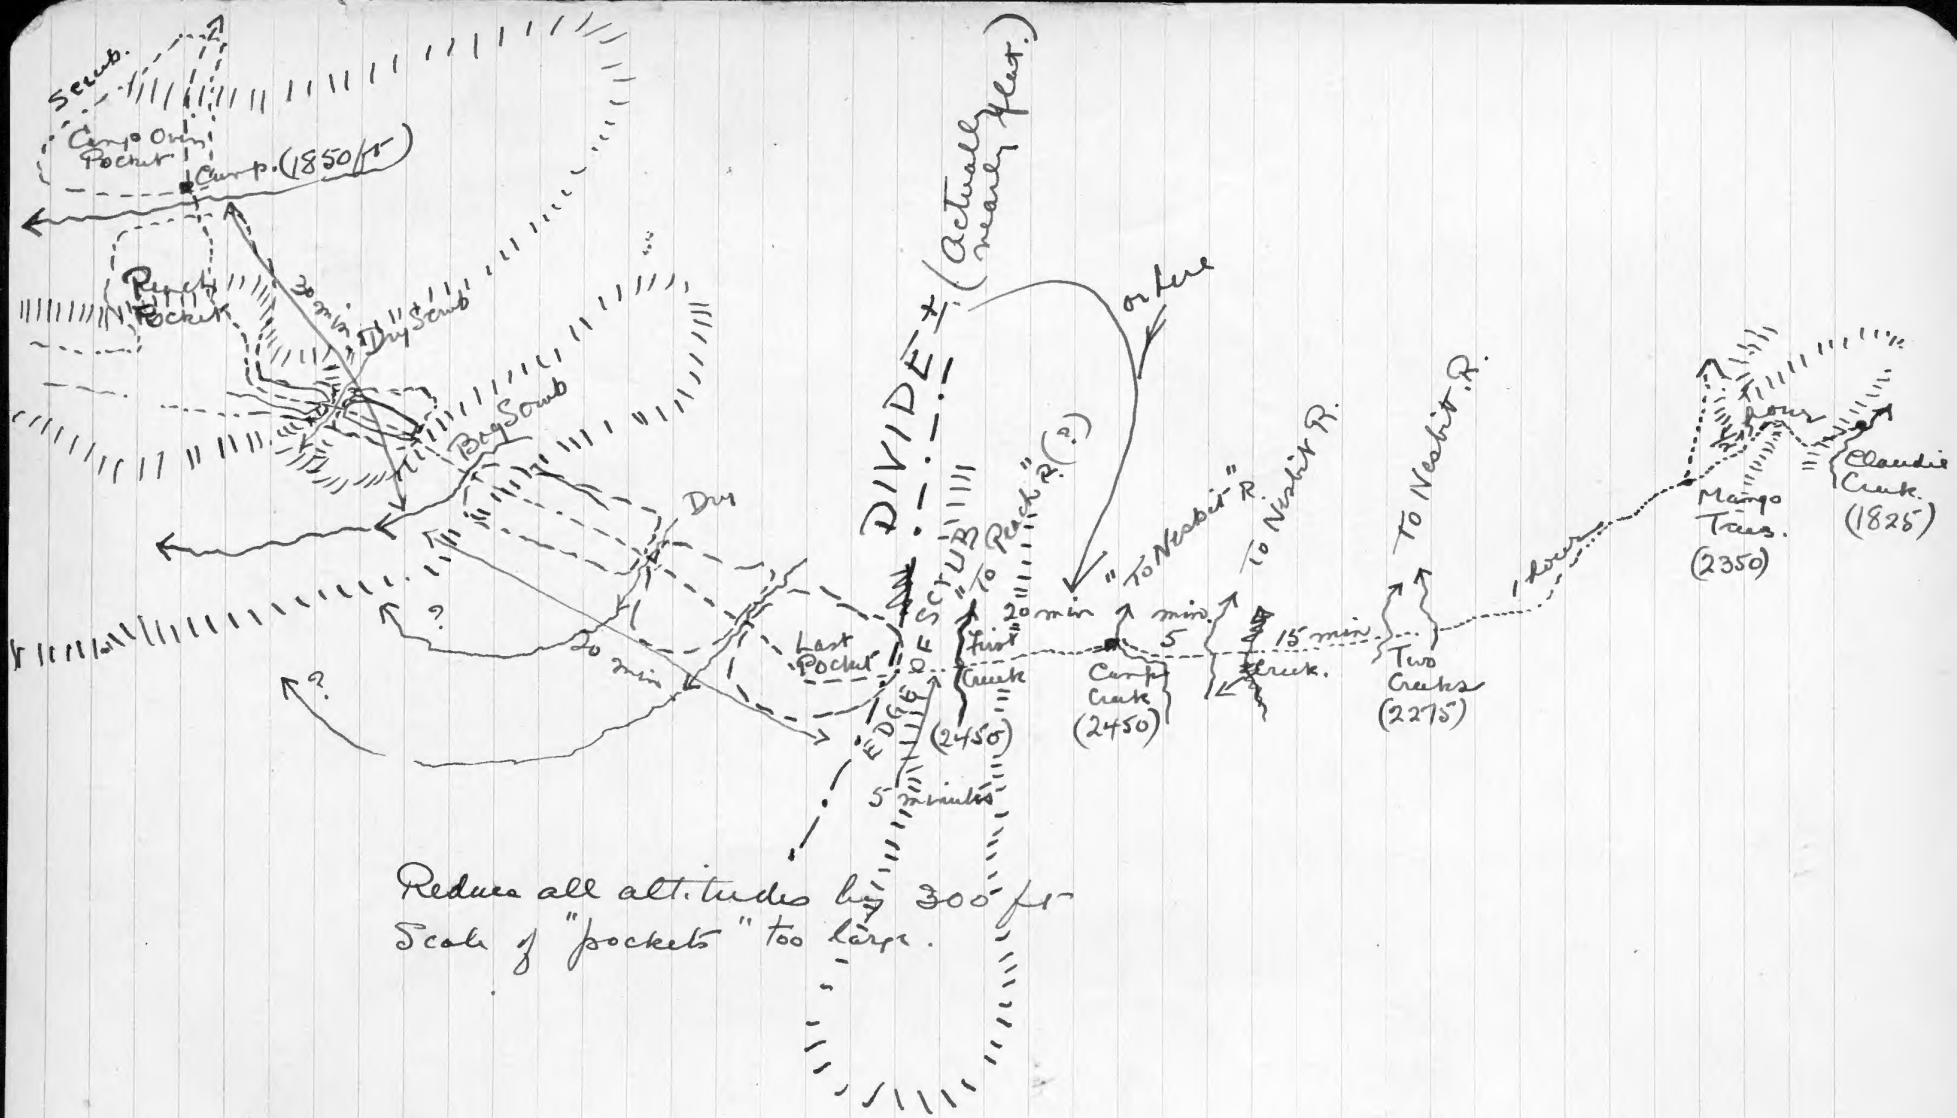 Scrub.
Camp Oven
Pocket
Camp. (1850 ft)
Pocket
30 min
"Dry Scrub"
Big Scrub
Dry
?
?
20 min
Last
Pocket
DIVIDE ±
(Actually
nearly flat.)
or here
EDGE OF SCRUB
"To Peach" R. (?)
First
Creek
(2450)
5 minutes
20 min
"To Nesbit" R.
Camp
Creek
(2450)
5 min.
To Nesbit R.
Creek.
15 min
To Nesbit R.
Two
Creeks
(2275)
1 hour
Mango
Trees.
(2350)
hour
Claudie
Creek.
(1825)
Reduce all altitudes by 300 ft
Scale of "pockets" too large.